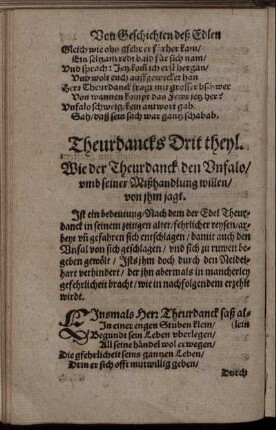 Von Geschichten deß Edlen
Gleich wie ohn gfehr er fürher kam/
Ein seltzam redt baid für sich nam/
Und sprach: Jetz kom ich erst hergan/
Und wolt euch auffgewecket han
Herr Theurdanck fragt mit grosser bschwer
Von wannen kompt das Jewr jetz her?
Unfalo schweig/ kein antwort gab.
Sah/ daß sein sach war gantz schabab.
Theurdancks Drit theyl.
Wie der Theurdanck den Unfalo/
umb seiner Mißhandlung willen/
von jhm jagt.
Ist ein bedeutung/ Nach dem der Edel Theur-
danck in seinem zeinigen alter/ fehrlicher reysen/ ar-
hey uñ gefahren sich entschlagen/ damit auch den
Unfal von sich geschlagen/ und sich zu ruwen be-
geben gewölt/ Ists jhm doch durch den Neidel-
hart verhindert/ der jhn abermals in mancherley
gefehrlicheit bracht/ wie in nachfolgendem erzehlt
wirde.
EInsmals Herr Theurdanck saß al-
In einer engen Stuben klein/ (lein
Begundt sein Leben uberlegen/
All seine händel wol erwegen/
Die gfehrlicheit seins gantzen Leben/
Drin er sich offt mutwillig geben/
Durch